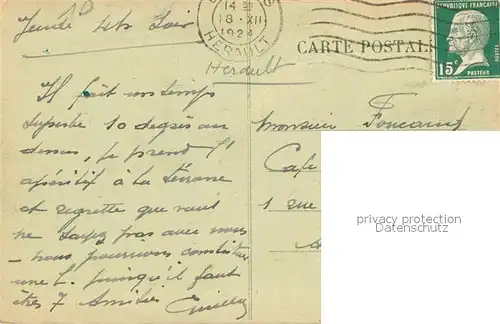 Jeudi 4h Soir
14
18 · XII
1924
HERAULT
Herault
CARTE POSTAL
REPUBLIQUE FRANCAISE
15c
PASTEUR
Il fait un temps
superbe 10 degrés au
dessus, je prend l'
apéritif à la terrasse
et regrette que vous
ne soyez pas avec nous
- nous pourrions constituer
une L. puisqu'il faut
êtres 7 Amitiés
Monsieur
Cafe
1 rue
privacy protection